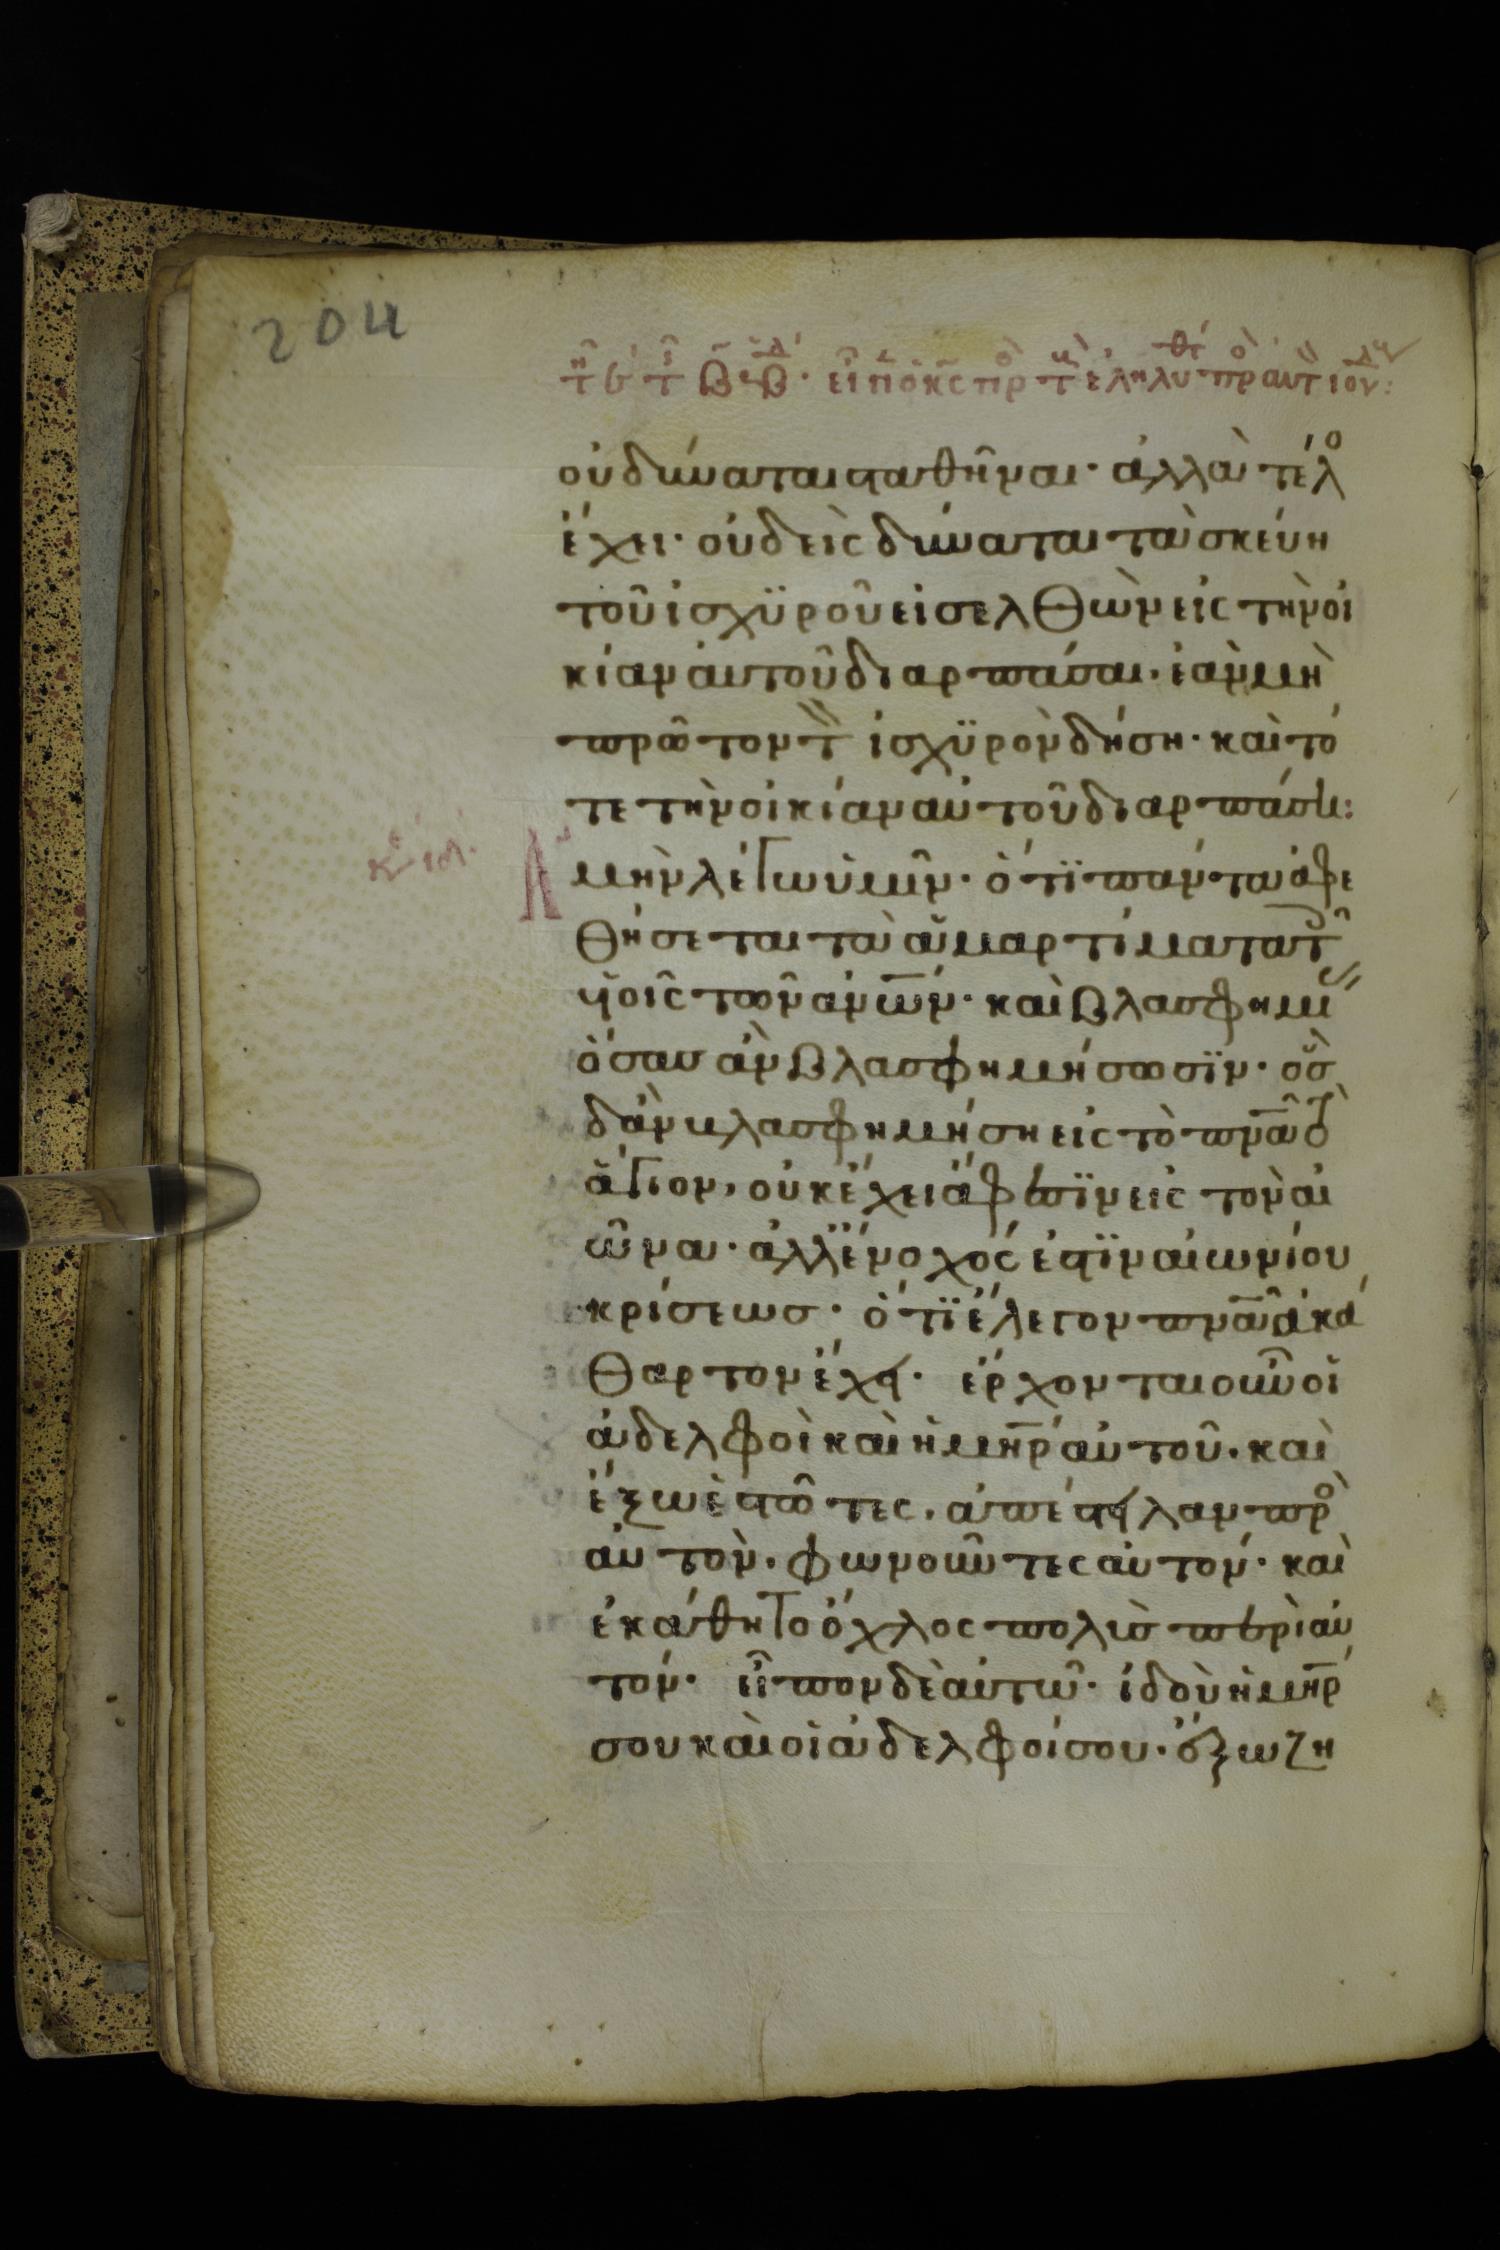 204
οὐ δύναται σταθῆναι· ἀλλὰ τέλ
ἔχει· οὐδεὶς δύναται τὰ σκεύη
τοῦ ἰσχϋροῦ εἰσελθὼν εἰς τὴν οἰ
κίαν αὐτοῦ διαρπάσαι· ἐὰν μὴ
πρῶτον τ ἰσχϋρὸν δήση· καὶ τό
τε τὴν οἰκίαν αὐτοῦ διαρπάσει:
Ἀμὴν λέγω ὑμῖν· ὅτϊ πάντα ἀφε
θήσεται τὰ ἁμαρτίματα τ
υἱοῖς τῶν ἀνων· καὶ βλασφημι
ὅσας ἂν βλασφημήσωσϊν· ὃς
δἂν βλασφημήση εἰς τὸ πνα τὸ
ἅγιον, οὐκ ἔχει ἄφεσϊν εἰς τὸν αἰ
ῶνα· ἀλλ ἔνοχός ἐστϊν αἰωνίου
κρίσεως· ὅτϊ ἔλεγον πνα ἀκά
θαρτον ἔχει· ἔρχονται οὖν οἱ
ἀδελφοὶ καὶ ἡ μηρ αὐτοῦ· καὶ
ἔξω ἑστῶτες, ἀπέστειλαν πρ
αὐτὸν· φωνοῦντες αὐτόν· καὶ
ἐκάθητο ὄχλος πολὺς περὶ αὐ
τόν· εἶπον δὲ αὐτῶ· ἰδοὺ ἡ μηρ
σου καὶ οἱ ἀδελφοί σου· ἔξω ζη